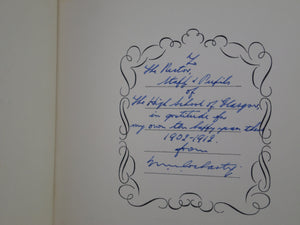 To
The Rector,
Staff & Pupils
of
The High School of Glasgow
in gratitude for
my own ten happy years there
1902-1912.
from